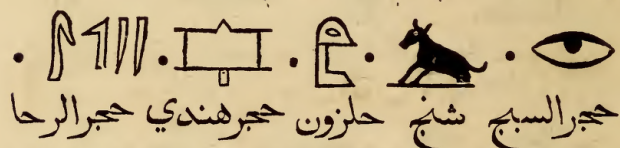 حجر السبج شنج حلزون حجر هندي حجر الرحا